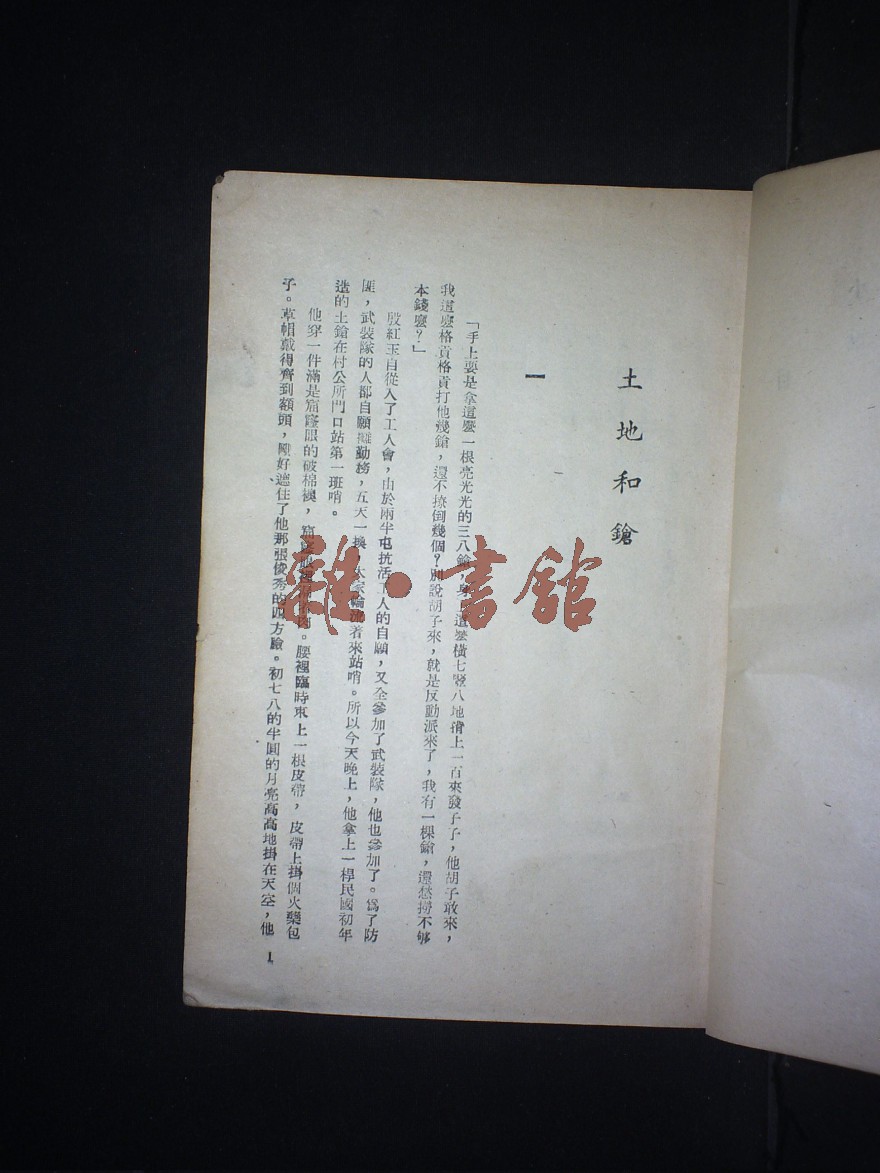 土地和鎗
一
「手上要是拿這麼一根亮光光的三八鎗，身上這麼橫七豎八地揹上一百來發子子，他胡子敢來，
我這麼格貢格貢打他幾鎗，還不撩倒幾個？別說胡子來，就是反動派來了，我有一棵鎗，還愁撈不够
本錢麼？」
殷紅玉自從入了工人會，由於兩半屯抗活工人的自願，又全參加了武裝隊，他也參加了。爲了防
匪，武裝隊的人都自願攤勤務，五天一換，大家輪流着來站哨。所以今天晚上，他拿上一桿民國初年
造的土鎗在村公所門口站第一班哨。
他穿一件滿是窟窿眼的破棉襖，窟窿眼。腰裡臨時束上一根皮帶，皮帶上掛個火藥包
子。草帽戴得齊到額頭，剛好遮住了他那張俊秀的四方臉。初七八的半圓的月亮高高地掛在天空，他
1
雜·書館